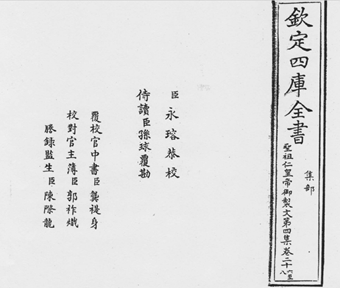 欽定四庫全書
集部
聖祖仁皇帝御製文第四集卷二十六至八
臣永瑢恭校
侍讀臣孫球覆勘
覆校官中書臣龔褆身
校對官主簿臣郭祚熾
謄錄監生臣陳際龍